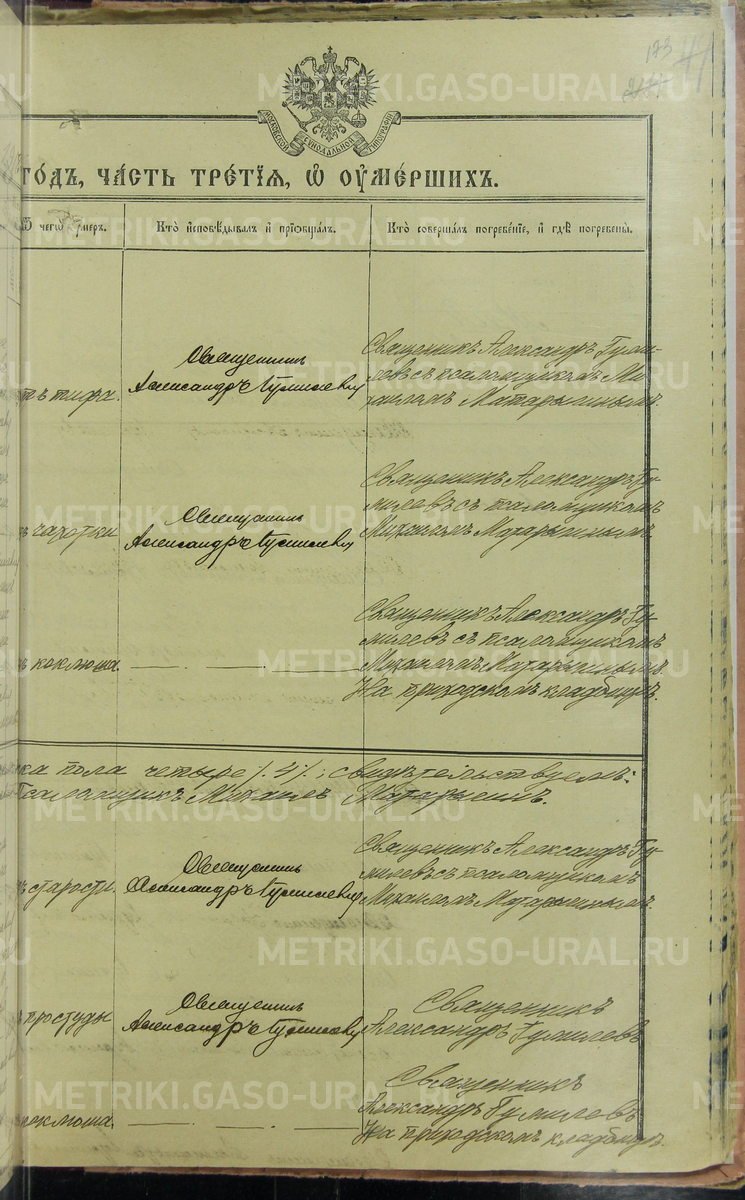 173
МОСКОВСКОЙ СѴНОДАЛЬНОЙ ТИПОГРАФІИ
ГО́ДЪ, ЧА́СТЬ ТРЕ́ТІЯ, Ѡ҆ ОУ҆МЕ́РШИХЪ.
Ѿ чегѡ̀ ᲂу҆́меръ.
Кто̀ и҆сповѣ́дывалъ и҆ прїѻбща́лъ.
Кто̀ соверша́лъ погребе́нїе, и҆ гдѣ̀ погребены̀.
отъ тифа.
Священникъ
Александръ Гумилевъ
Священникъ Александръ Гуми-
левъ съ псаломщикомъ Ми-
хаиломъ Матарыгинымъ.
чахотки
Священникъ
Александръ Гумилевъ
Священникъ Александръ Гу-
милевъ съ псаломщикомъ
Михаиломъ Матарыгинымъ.
коклюша.
Священникъ Александръ Гу-
милевъ съ псаломщикомъ
Михаиломъ Матарыгинымъ.
На приходскомъ кладбищѣ.
ка пола четыре /.4/.; свидѣтельствуемъ:
Псаломщикъ Михаилъ Матарыгинъ.
старости.
Священникъ
Александръ Гумилевъ
Священникъ Александръ Гу-
милевъ съ псаломщикомъ
Михаиломъ Матарыгинымъ.
простуды
Священникъ
Александръ Гумилевъ
Священникъ
Александръ Гумилевъ
коклюша.
Священникъ
Александръ Гумилевъ
На приходскомъ кладбищѣ.
METRIKI.GASO-URAL.RU